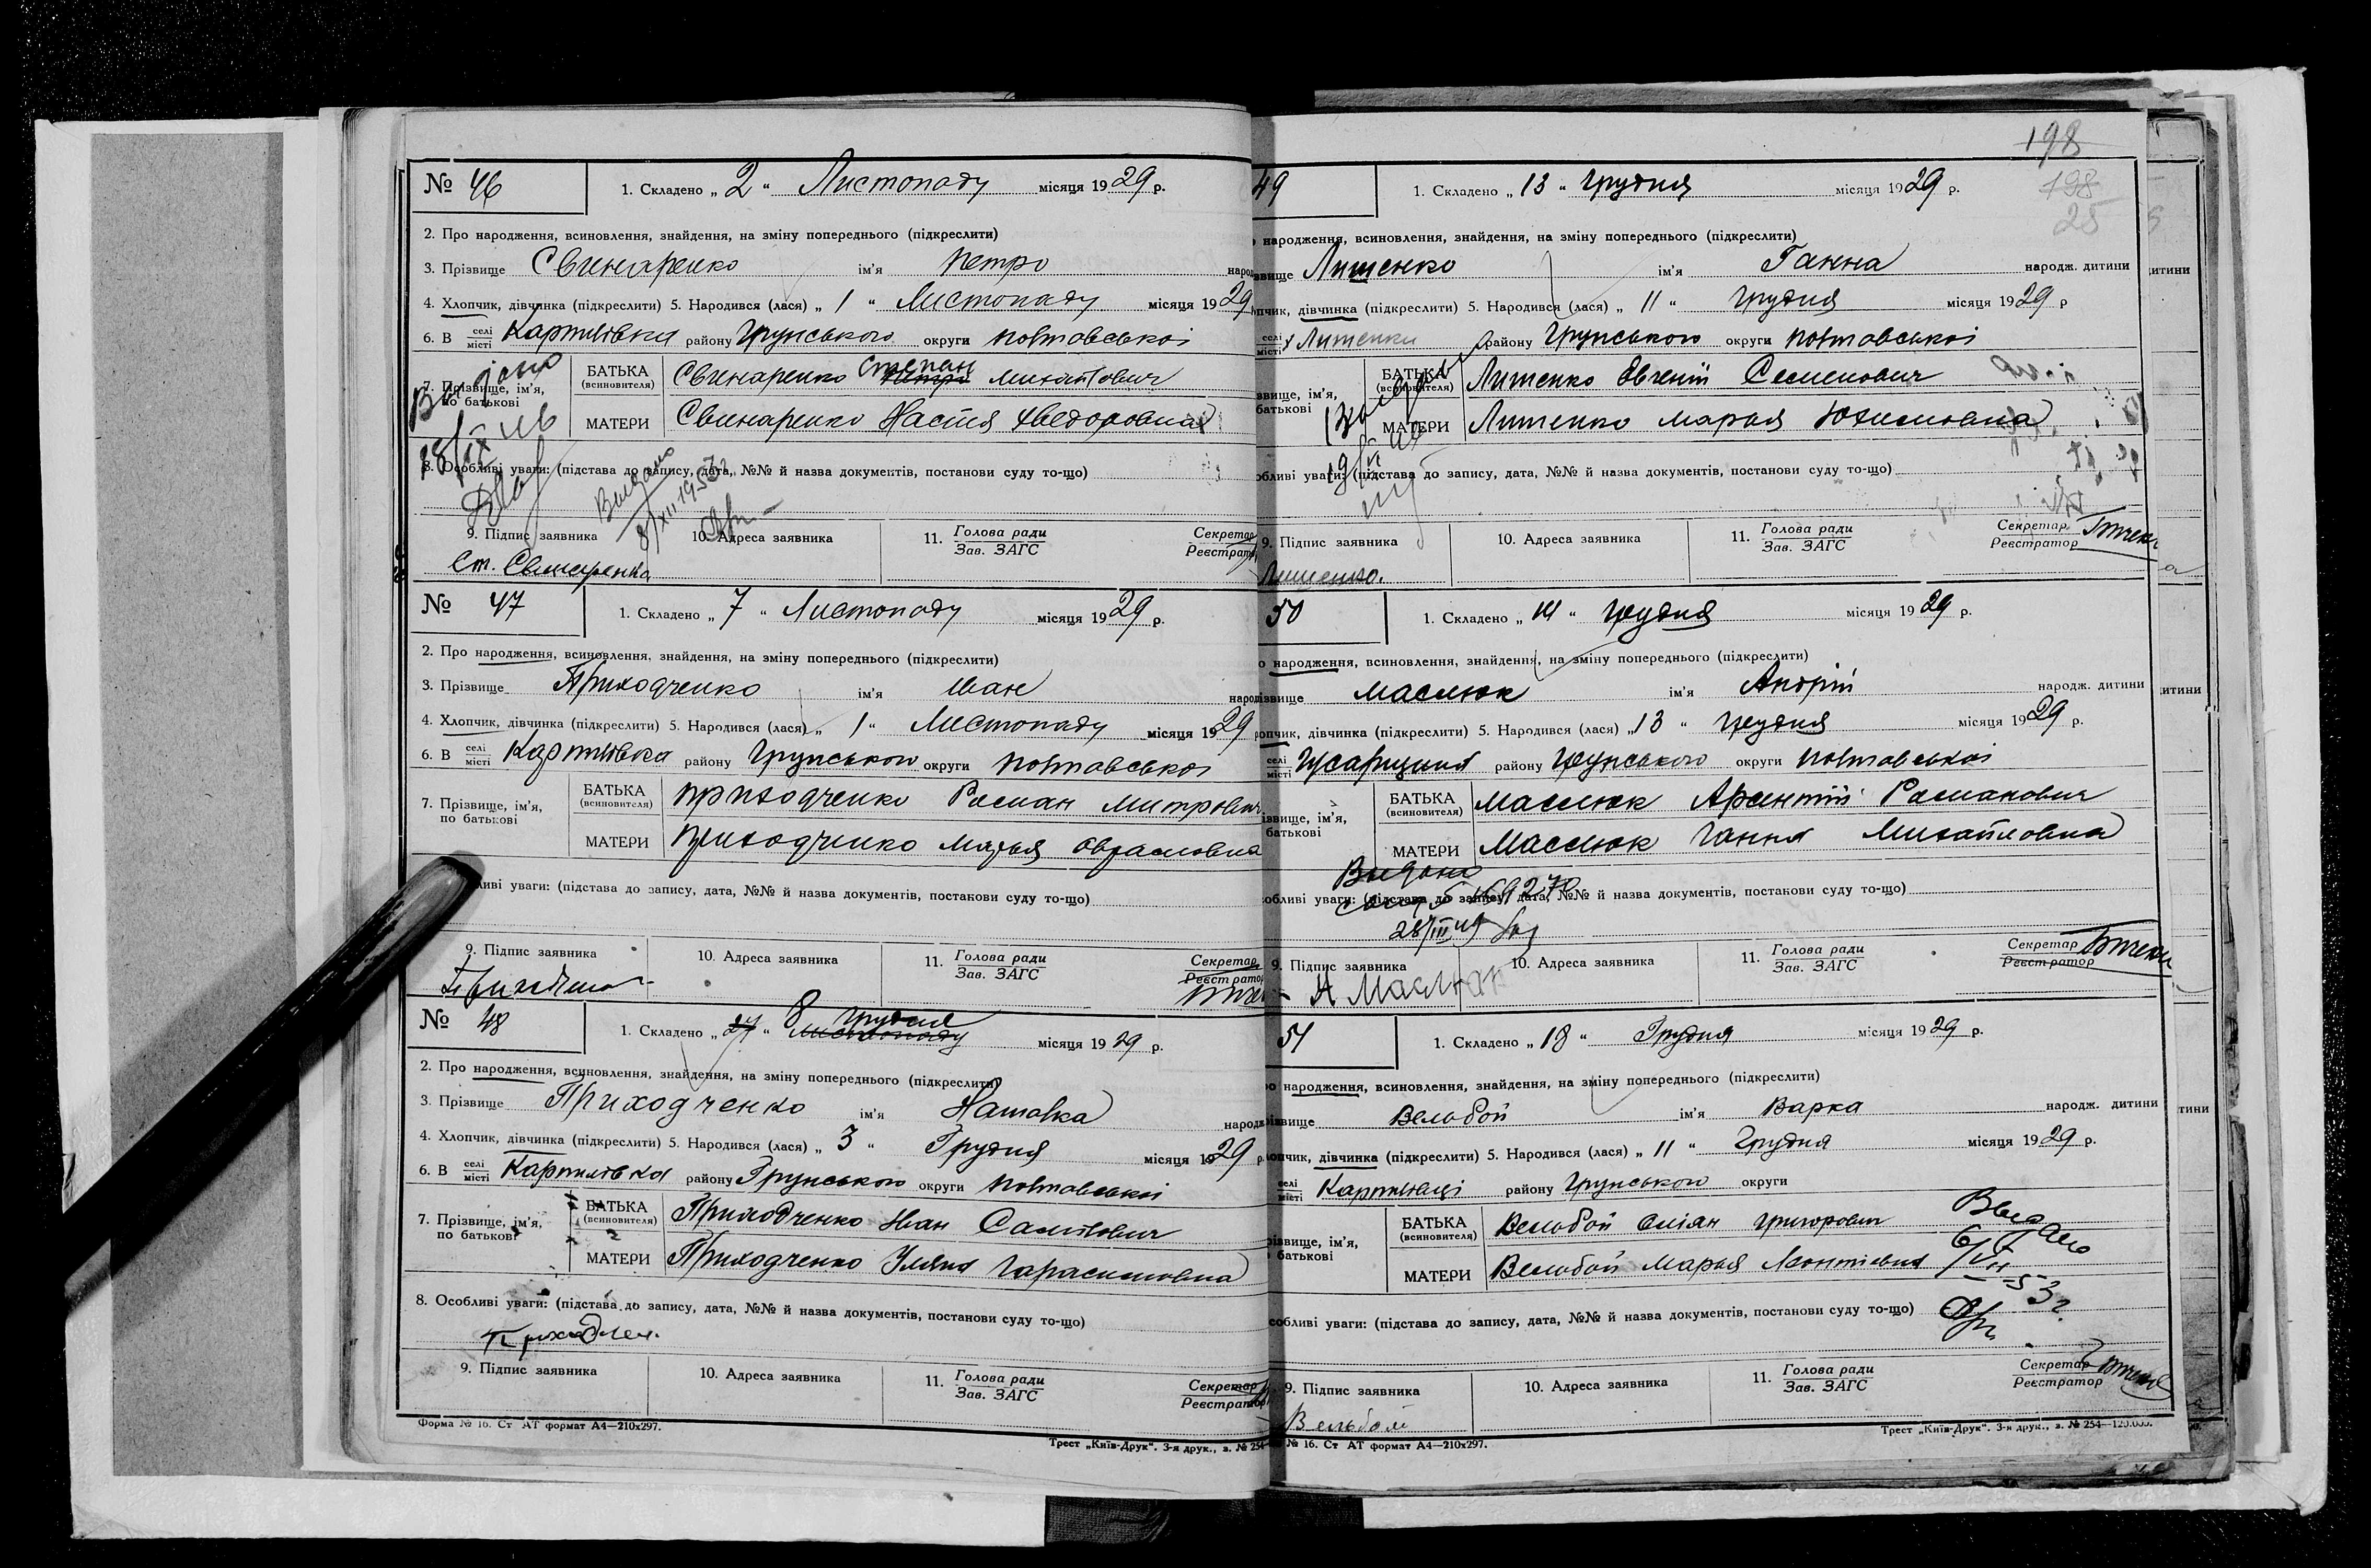 № 46
1. Складено „ 2 “ Листопаду місяця 1929 р.
2. Про народження, всиновлення, знайдення, на зміну попереднього (підкреслити)
3. Прізвище Свинаренко ім'я Петро народ
4. Хлопчик, дівчинка (підкреслити) 5. Народився (лася) „ 1 “ Листопаду місяця 1929
6. В селі місті Картилівка району Грунського округи Полтавської
7. Прізвище, ім'я, по батькові
БАТЬКА (всиновителя) Свинаренко Степан Михайлович
МАТЕРИ Свинаренко Настя Хведоровна
Видано
18/IX 46
8. Особливі уваги: (підстава до запису, дата, №№ й назва документів, постанови суду то-що)
Видано
8/XII 1953
9. Підпис заявника
10. Адреса заявника
11. Голова ради
Зав. ЗАГС
Секретар
Реєстратор
Ст. Свинаренка
№ 47
1. Складено „ 7 “ Листопаду місяця 1929 р.
2. Про народження, всиновлення, знайдення, на зміну попереднього (підкреслити)
3. Прізвище Приходченко ім'я Іван народ
4. Хлопчик, дівчинка (підкреслити) 5. Народився (лася) „ 1 “ Листопаду місяця 1929
6. В селі місті Картилівка району Грунського округи Полтавської
7. Прізвище, ім'я, по батькові
БАТЬКА (всиновителя) Приходченко Роман Митрович
МАТЕРИ Приходченко Марья Оврамовна
ливі уваги: (підстава до запису, дата, №№ й назва документів, постанови суду то-що)
9. Підпис заявника
10. Адреса заявника
11. Голова ради
Зав. ЗАГС
Секретар
Реєстратор
№ 48
1. Складено „ 27 “ 8 Грудня Листопаду місяця 1929 р.
2. Про народження, всиновлення, знайдення, на зміну попереднього (підкреслити)
3. Прізвище Приходченко ім'я Наталка народ
4. Хлопчик, дівчинка (підкреслити) 5. Народився (лася) „ 3 “ Грудня місяця 1929 р
6. В селі місті Картилівка району Грунського округи Полтавської
7. Прізвище, ім'я, по батькові
БАТЬКА (всиновителя) Приходченко Іван Самійлович
МАТЕРИ Приходченко Уляна Гарасимовна
8. Особливі уваги: (підстава до запису, дата, №№ й назва документів, постанови суду то-що)
9. Підпис заявника
10. Адреса заявника
11. Голова ради
Зав. ЗАГС
Секретар
Реєстратор
Форма № 16. Ст АТ формат А4—210х297.
Трест „Київ-Друк“. 3-я друк., з. № 254
198
198
25
49
1. Складено „ 13 “ Грудня місяця 1929 р.
народження, всиновлення, знайдення, на зміну попереднього (підкреслити)
звище Лишенко ім'я Ганна народж. дитини
пчик, дівчинка (підкреслити) 5. Народився (лася) „ 11 “ Грудня місяця 1929 р
селі місті Лишенки району Грунського округи Полтавської
звище, ім'я, батькові
БАТЬКА (всиновителя) Лишенко Євгеній Семенович
МАТЕРИ Лишенко Марья Юхимовна
обливі уваги: (підстава до запису, дата, №№ й назва документів, постанови суду то-що)
9. Підпис заявника
10. Адреса заявника
11. Голова ради
Зав. ЗАГС
Секретар
Реєстратор
Лишенко.
50
1. Складено „ 14 “ Грудня місяця 1929 р.
о народження, всиновлення, знайдення, на зміну попереднього (підкреслити)
ізвище Маслюк ім'я Андрій народж. дитини
опчик, дівчинка (підкреслити) 5. Народився (лася) „ 13 “ Грудня місяця 1929 р.
селі місті району Грунського округи Полтавської
ізвище, ім'я, батькові
БАТЬКА (всиновителя) Маслюк Арсентій Романович
МАТЕРИ Маслюк Ганна Михайловна
Видано
обливі уваги: (підстава до запису, дата, №№ й назва документів, постанови суду то-що)
28/III 49
9. Підпис заявника
10. Адреса заявника
11. Голова ради
Зав. ЗАГС
Секретар
Реєстратор
А Маслюк
51
1. Складено „ 18 “ Грудня місяця 1929 р.
о народження, всиновлення, знайдення, на зміну попереднього (підкреслити)
ізвище Вельбой ім'я Варка народж. дитини
опчик, дівчинка (підкреслити) 5. Народився (лася) „ 11 “ Грудня місяця 1929 р.
селі місті району Грунського округи
ізвище, ім'я, батькові
БАТЬКА (всиновителя) Вельбой Омілян Григорович
МАТЕРИ Вельбой Марья Леонтіевна
Видано
6/VII-53г
собливі уваги: (підстава до запису, дата, №№ й назва документів, постанови суду то-що)
9. Підпис заявника
10. Адреса заявника
11. Голова ради
Зав. ЗАГС
Секретар
Реєстратор
Вельбой
№ 16. Ст АТ формат А4—210х297.
Трест „Київ-Друк“. 3-я друк., з. № 254—120.000.